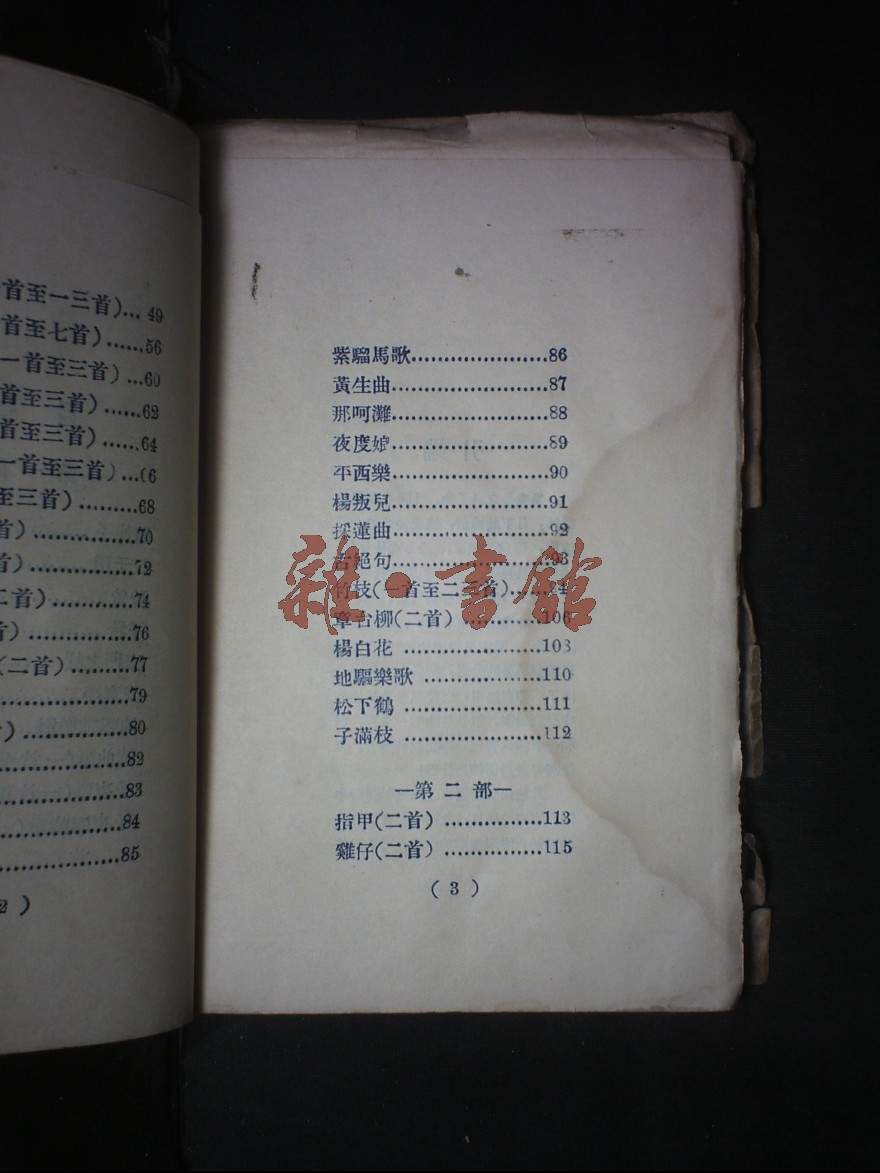 首至一三首)... 49
首至七首)......56
一首至三首) ...60
首至三首) ......62
首至三首) ......64
一首至三首) ...66
至三首) .........68
首) ...............70
首) ...............72
二首) ............74
首) ...............76
(二首) .........77
..................79
) ..................80
..................82
..................83
..................84
..................85
2 )
紫騮馬歌.....................86
黃生曲........................87
那呵灘........................88
夜度娘........................89
平西樂........................90
楊叛兒........................91
採蓮曲........................92
古絕句........................93
竹枝(一首至二三首).........94
章台柳(二首) ...............106
楊白花 .....................108
地驅樂歌 ..................110
松下鶴 .....................111
子滿枝 .....................112
—第 二 部—
指甲(二首) ...............113
雞仔(二首) ...............115
( 3 )
雜·書館